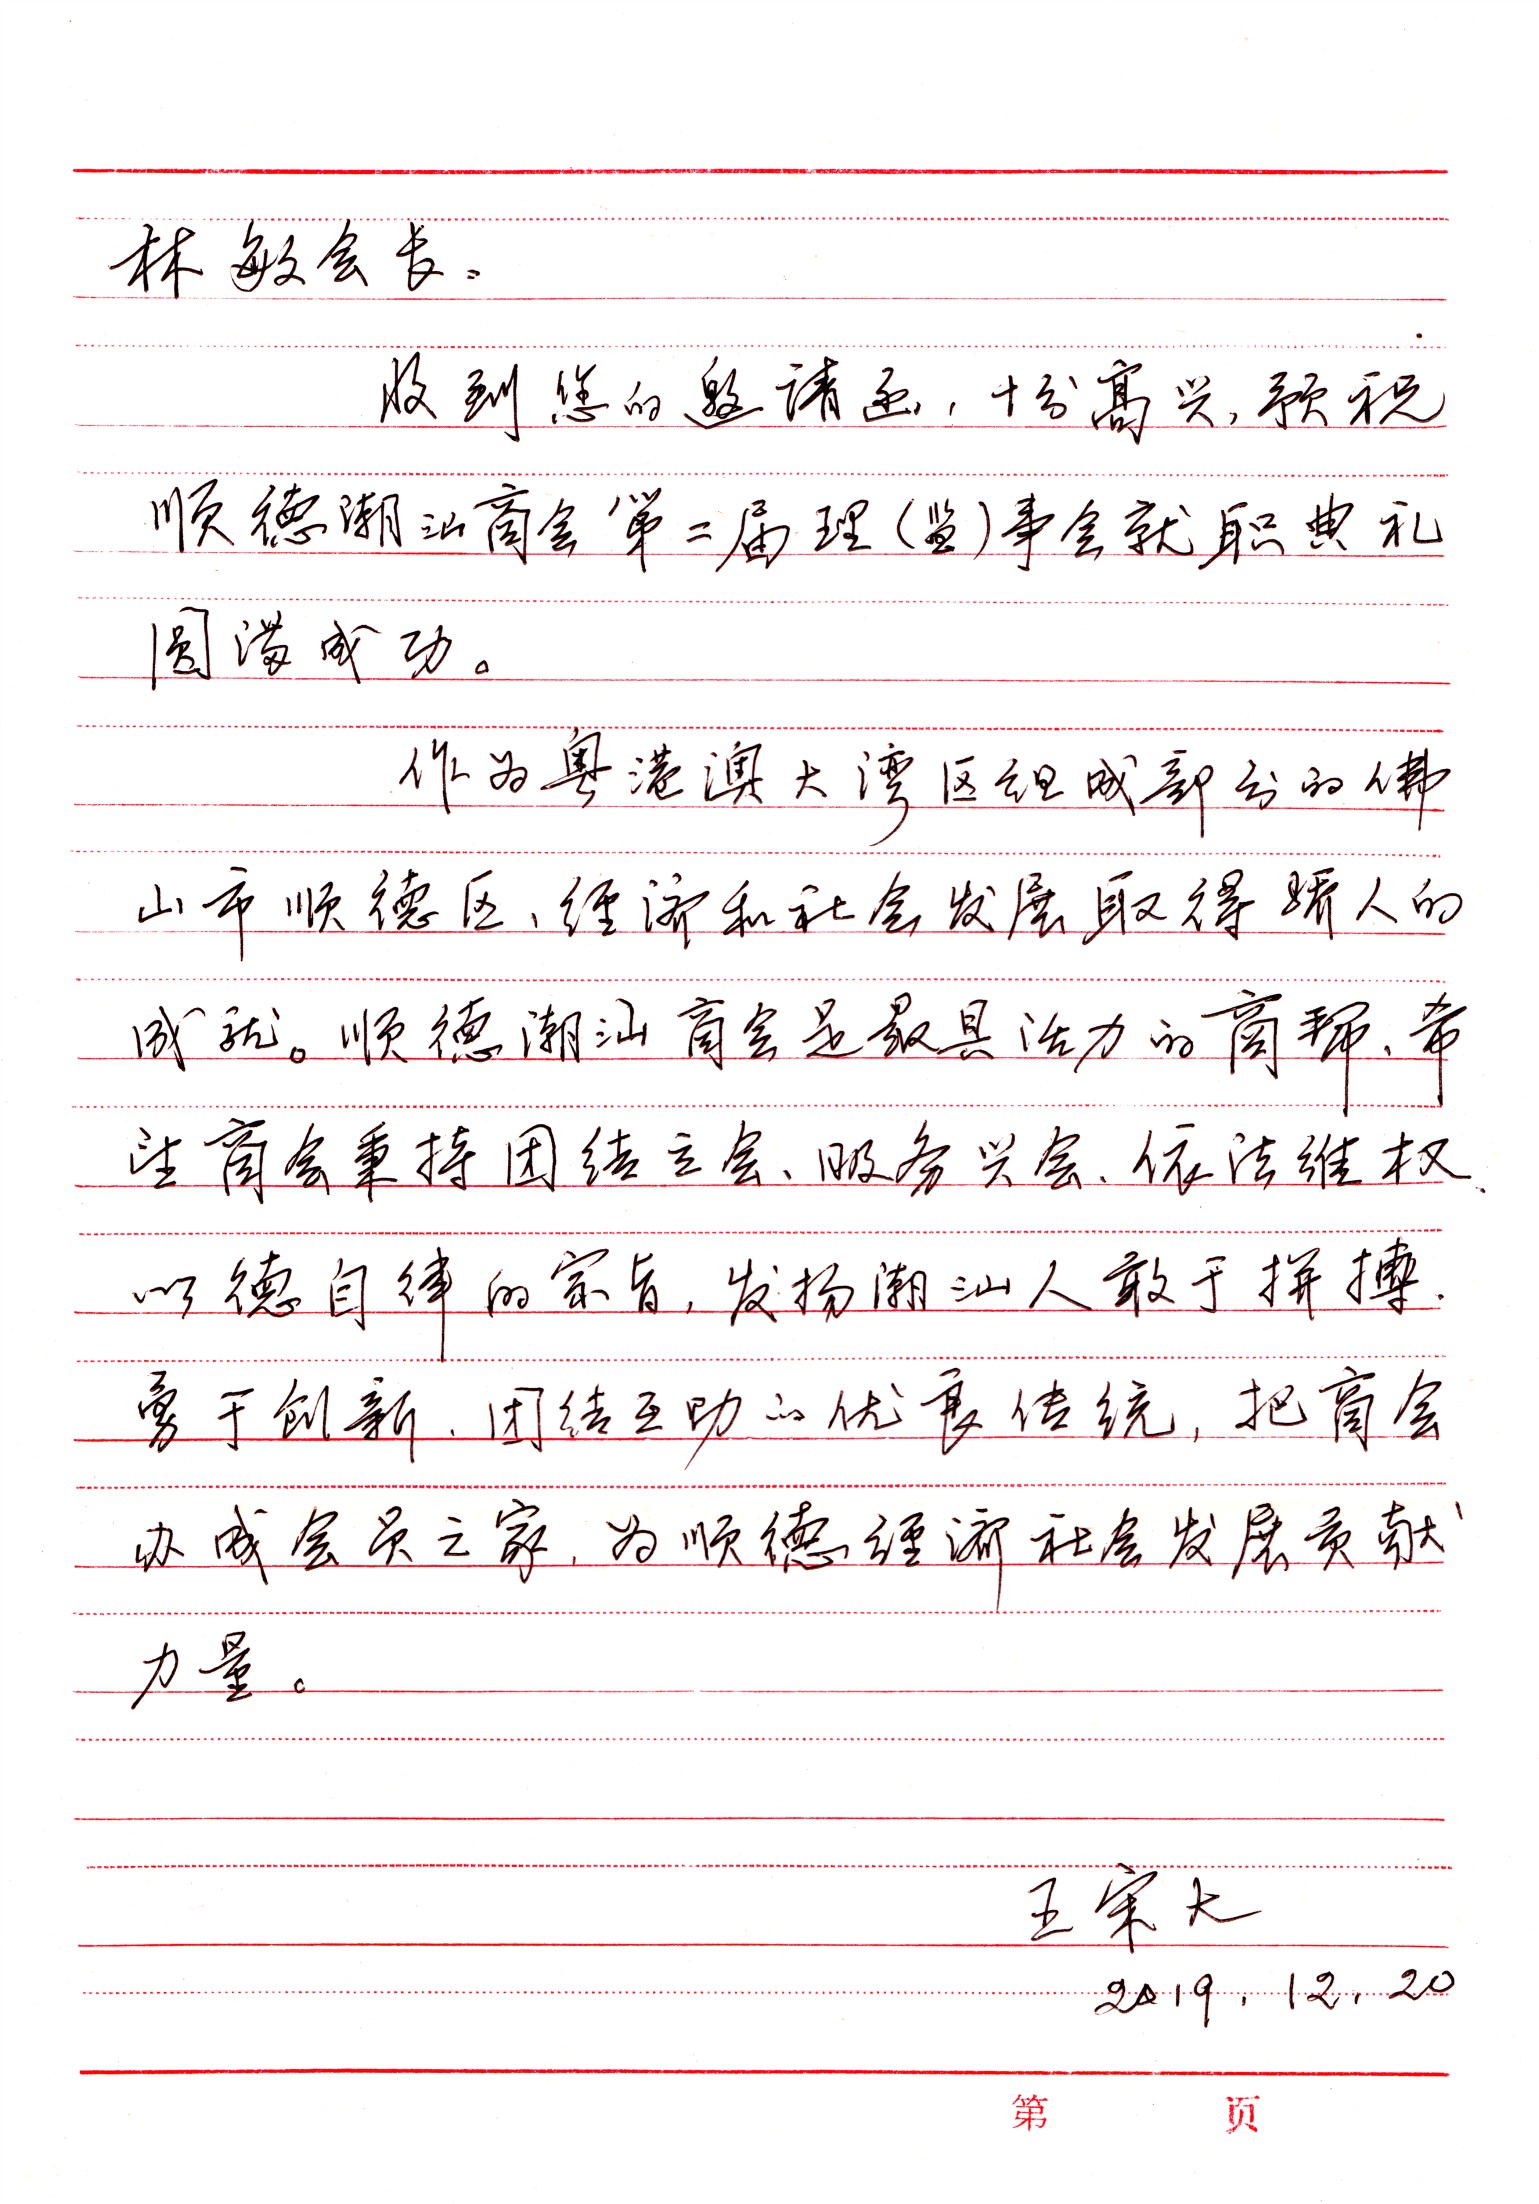 林敏会长：
收到您的邀请函，十分高兴，预祝
顺德潮汕商会第二届理（监）事会就职典礼
圆满成功。
作为粤港澳大湾区组成部分的佛
山市顺德区，经济和社会发展取得骄人的
成就。顺德潮汕商会是最具活力的商帮，希
望商会秉持团结立会、服务兴会、依法维权、
以德自律的宗旨，发扬潮汕人敢于拼搏、
勇于创新、团结互助的优良传统，把商会
办成会员之家，为顺德经济社会发展贡献
力量。
王宋大
2019.12.20
第 页